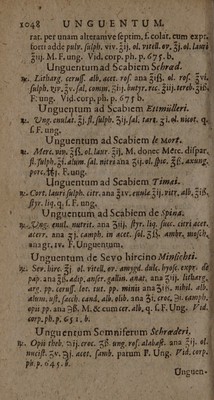 1048 UNGUENTUM.
rat. per unam alteramve septim. s. colat. cum expr.
forti adde pulv. sulph. viv. ʒij. ol. vitell. ov. ʒj. ol. lauri
ʒiij. M. F. ung. Vid. corp. ph. p. 675. b.
Unguentum ad Scabiem Schrœd.
℞ Litharg. ceruss. alb. acet. ros. ana ol. ros.
sulph. ʒv. sal. comm. butyr. rec. tereb.
F. ung. Vid. corp. ph. p 675 b
Unguentum ad Scabiem Ettmülleri.
℞ Ung. enulat. ʒj. fl. sulph. sal. tart. ʒj. ol. nicot. q.
s. F. ung.
Unguentum ad Scabiem le Mort.
℞ Merc. viv. ol. laur. ʒij. M. donec Merc. dispar.
fl. sulph. ʒj. alum. sal. nitri ana ʒij. ol. axung.
porc. F. ung.
Unguentum ad Scabiem Timæi.
℞ Cort. lauri sulph. citr. ana enulæ ʒij. vitr. alb.
styr. liq. q. s. F. ung.
Unguentum ad Scabiem de Spina.
℞ Ung. enul. nutrit. ana ʒiij. styr. liq. succ. citri acet.
acerr. ana ʒj. camph. in acet. sol. ambr. mosch.
ana gr. iv. F. Unguentum.
Unguentum de Sevo hircino Minsichti.
℞ Sev. hirc. ʒj ol. vitell. ov. amygd. dulc. hyosc. expr. de
pap. ana adip. anser. gallin. anat. ana litharg.
arg. pp. ceruss. lot. tut. pp. minii ana nihil. alb.
alum. ust. sacch. cand. alb. olib. ana ʒi; croc. camph.
opii pp. ana M. & cum cer. alb. q. s. F. Ung. Vid.
corp. ph. p. 651. b.
Unguentum Somniferum Schrœderi,
℞ Opii theb. croc. ung. ros. alabast. ana ʒij. ol.
nucist. ʒv. acet. samb. parum F. Ung. Vid. corp.
ph. p. 645. b.
Unguen-